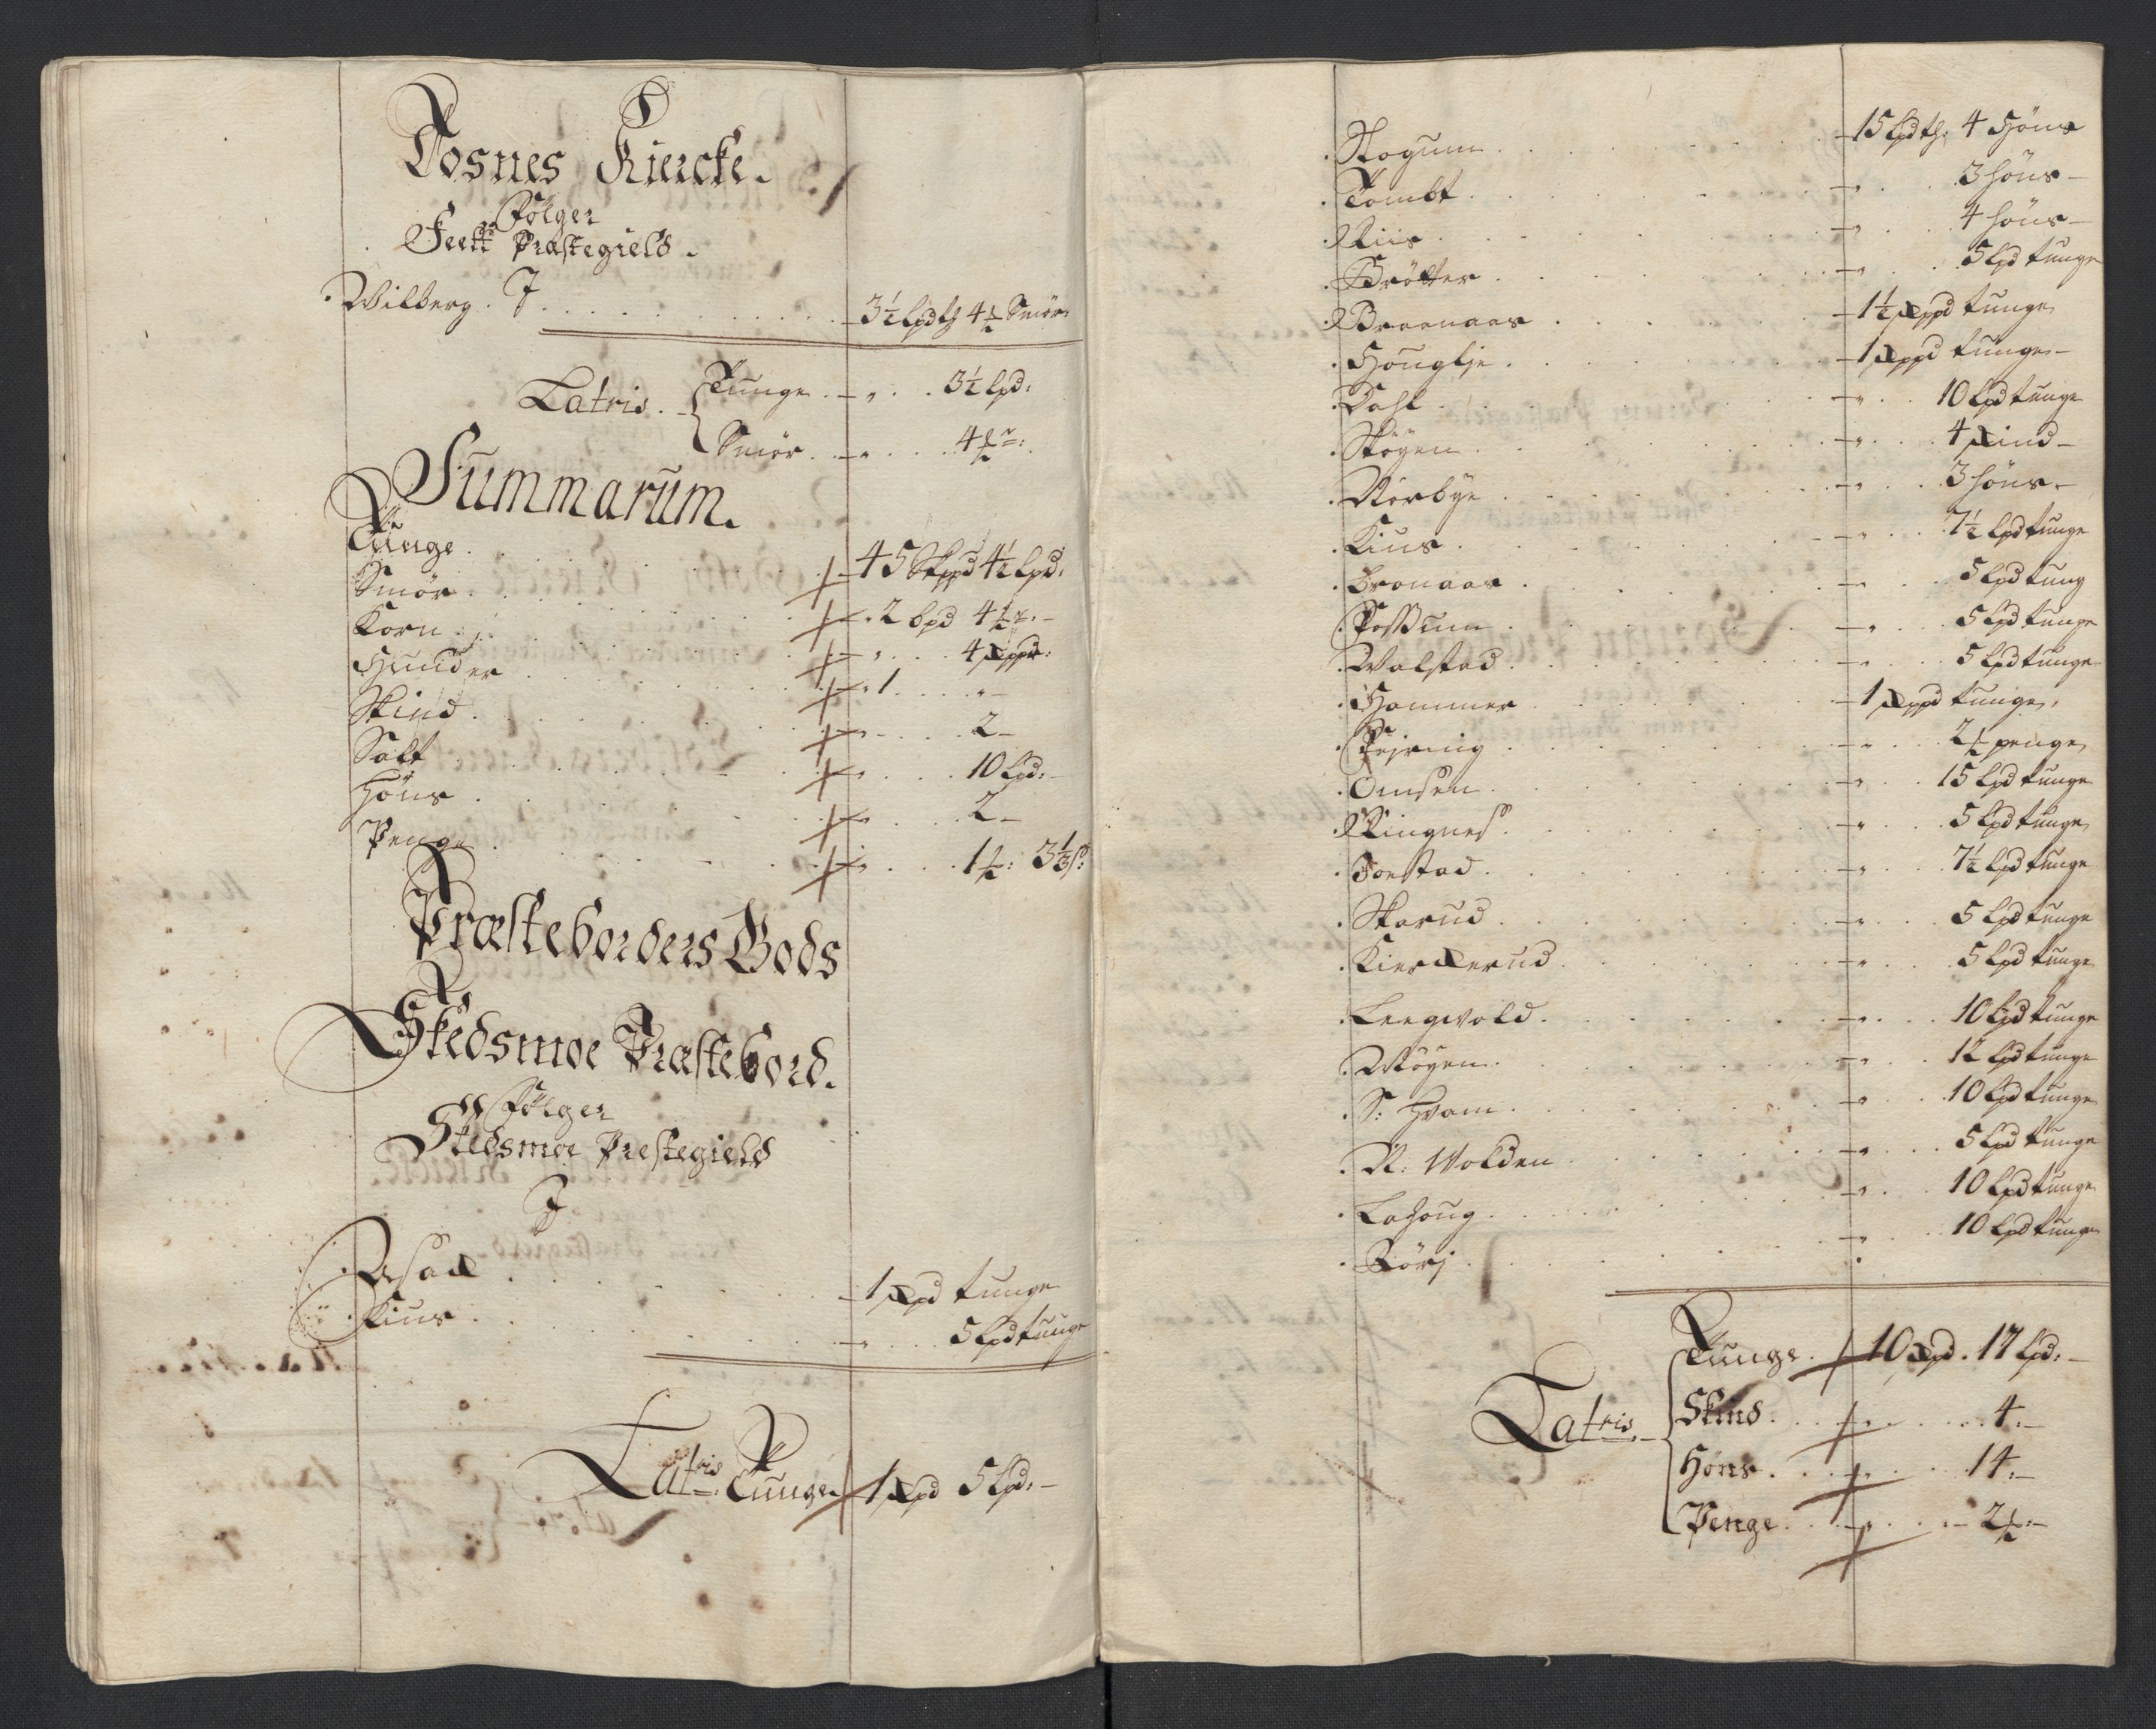 Tosnes Kiercke.
Følger
Feett Præstegield.
Wilberg. J 3½ Lpd tg 4 ₰ Smör
Latris. Tunge 3½ Lpd:
Smör 4 ₰
Summarum.
Tunge 45 Skppd 4½ Lpd:
Smör 2 Lpd 4½
Korn 4 Skppd:
Hunder 1
Skind 2
Salt 10 Lpd:
Höns 2
Penge 1 3⅓ s:
Præsteborders Gods
Skedsmoe Præstebord.
Følger
Skedsmoe Prestegield
J
Asack 1 Skpd tunge
Kius 5 Lpd tunge
Latris: Tunge 1 Skpd 5 Lpd:
Rogum 15 Lpd tg: 4 Höns
Tombt 3 höns
Riis 4 höns
Brötter 5 Lpd tunge
Braanaas 1½ Skppd tunge
Houglje 1 Skppd tunge
Dahl 10 Lpd tunge
Skögen 4 Skind
Nörbye 3 höns
Kius 7½ Lpd tunge
Bronaas 5 Lpd tung
Possum 5 Lpd tunge
Walstad 5 Lpd tunge
Hammer 1 Skppd tunge
2 penge
Omsen 15 Lpd tunge
Ringnes 5 Lpd tunge
Joestad 7½ Lpd tunge
Skarud 5 Lpd tunge
Kierkerud 5 Lpd tunge
Leegwold 10 Lpd tunge
Möyen 12 Lpd tunge
S: Hvam 10 Lpd tunge
N: Wolden 5 Lpd tunge
Lahoug 10 Lpd tunge
Körj 10 Lpd tunge
Latris.
Tunge. 10 Skpd. 17 Lpd:
Skind. 4:
Höns. 14:
Penge. 2